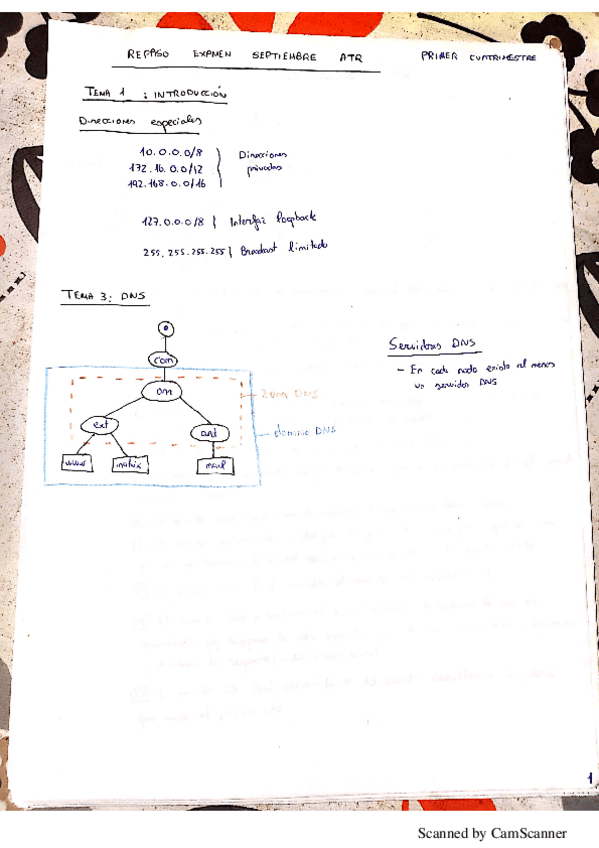 REPASO EXAMEN SEPTIEMBRE ATR PRIMER CUATRIMESTRE
TEMA 1 : INTRODUCCIÓN
Direcciones especiales
10.0.0.0/8
172.16.0.0/12
192.168.0.0/16
Direcciones
privadas
127.0.0.0/8 Interfaz loopback
255.255.255.255 Broadcast limitado
TEMA 3: DNS
com
ext
mail
Zona DNS
dominio DNS
Servidores DNS
- En cada nodo existe al menos
un servidor DNS
1
Scanned by CamScanner